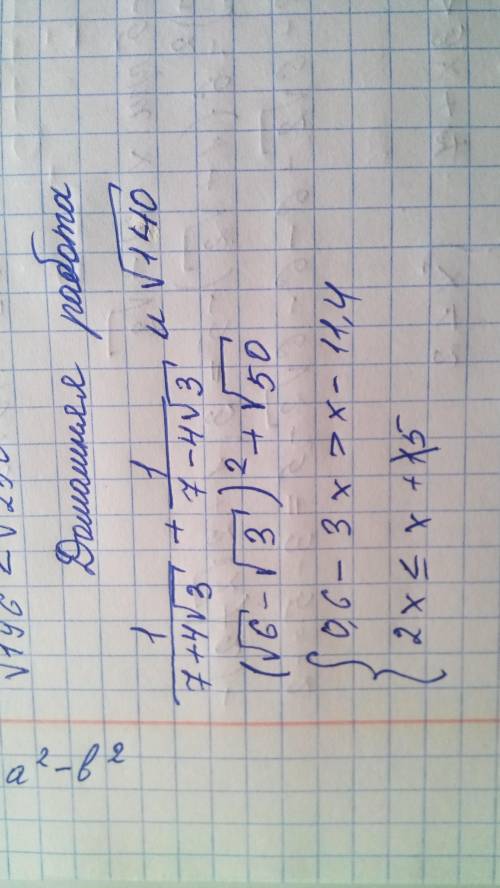 √196 < √250
Домашняя работа
1/(7+4√3) + 1/(7-4√3) и √140
(√6 - √3)² + √50
{ 0,6 - 3x > x - 11,4
2x ≤ x + 5
a² - b²